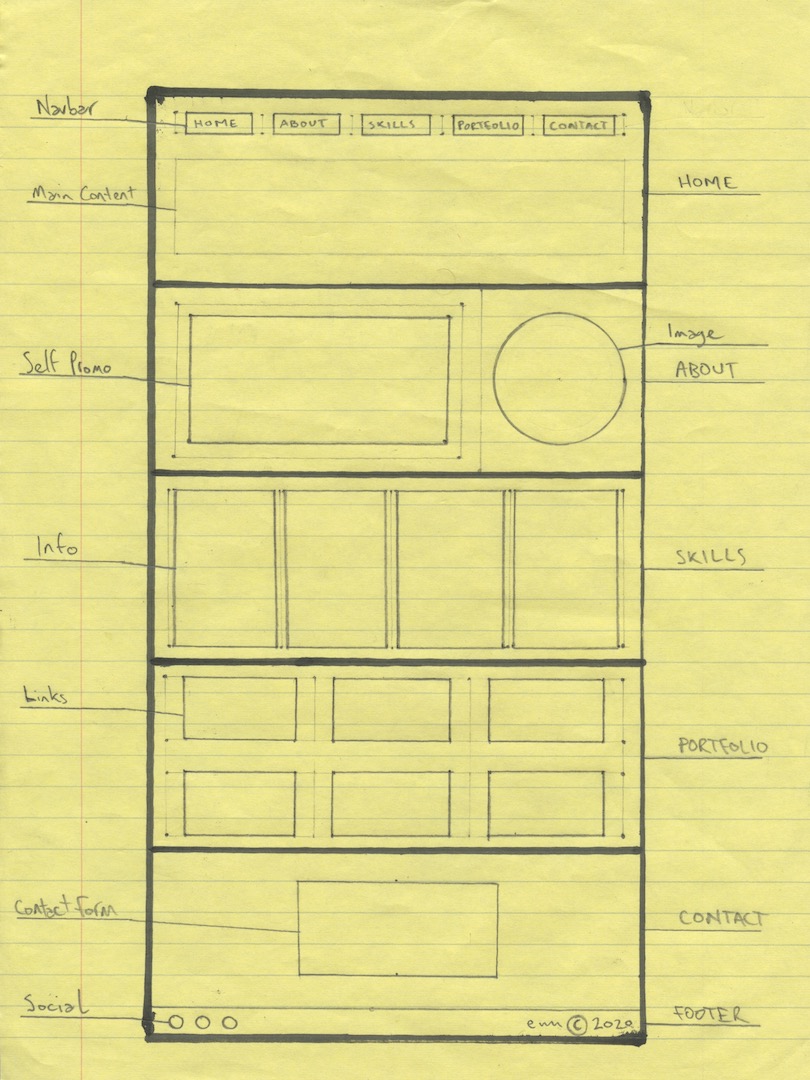 Navbar
HOME ABOUT SKILLS PORTFOLIO CONTACT
Main Content
HOME
Image
Self Promo
ABOUT
Info
SKILLS
Links
PORTFOLIO
Contact Form
CONTACT
Social
emn © 2020
FOOTER